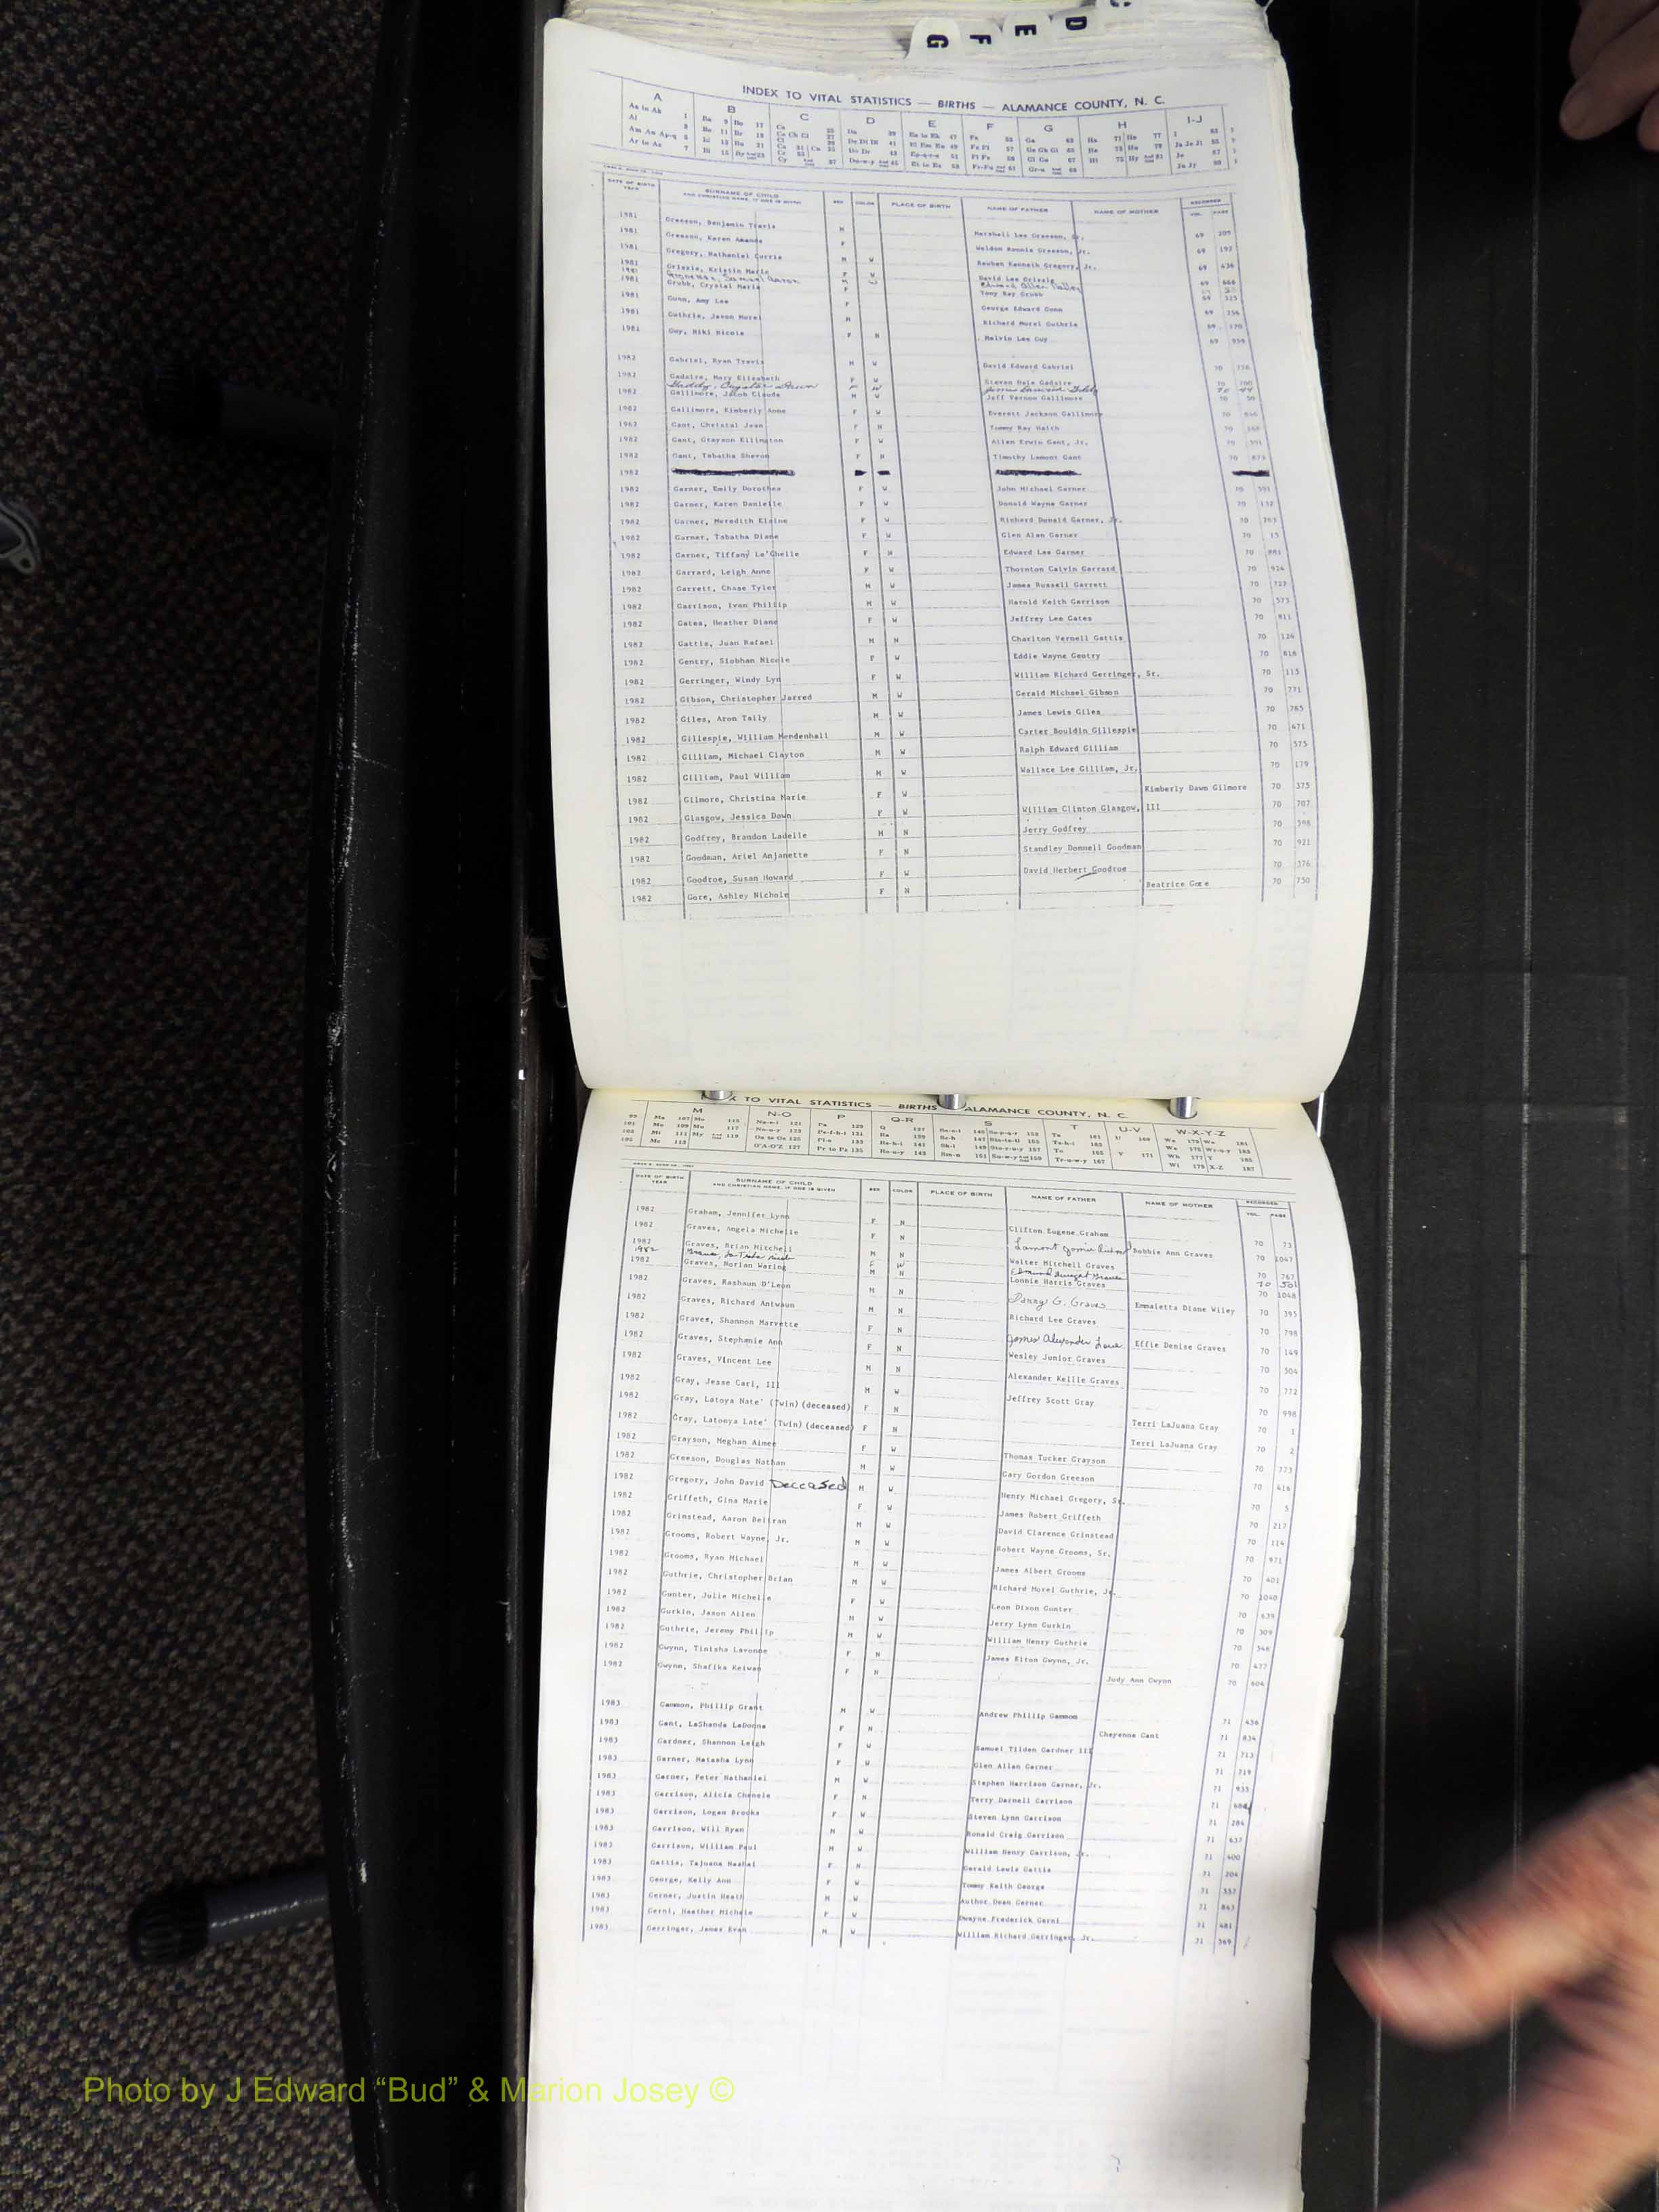 G F E D
INDEX TO VITAL STATISTICS — BIRTHS — ALAMANCE COUNTY, N. C.
A B C D E F G H I-J
DATE OF BIRTH YEAR SURNAME OF CHILD AND CHRISTIAN NAME, IF ONE IS GIVEN SEX COLOR PLACE OF BIRTH NAME OF FATHER NAME OF MOTHER RECORDED VOL. PAGE
1981 Greeson, Benjamin Travis M Marshall Lee Greeson, Sr. 69
1981 Greeson, Karen Amanda F Waldon Rennie Greeson, Jr. 69 192
1981 Gregory, Nathaniel Currie M W Reuben Kenneth Gregory, Jr. 69 436
1981 Grizzle, Kristin Marie F W David Lee Grizzle 69 668
1981 M W
1981 Grubb, Crystal Marie F Tony Ray Grubb 69 325
1981 Gunn, Amy Lee F George Edward Gunn 69 256
1981 Guthrie, Jason Morel M Richard Morel Guthrie 69
1981 Guy, Niki Nicole F N Melvin Lee Guy 69 959
1982 Gabriel, Ryan Travis M W David Edward Gabriel 70 776
1982 Gadaire, Mary Elizabeth F W Steven Dale Gadaire 70
Gaddy, Crystal Dawn F W 70 44
1982 Gallimore, Jacob Claude M W Jeff Vernon Gallimore 70 50
1982 Gallimore, Kimberly Anne F W Everett Jackson Gallimore 70 846
1982 Gant, Christal Jean F N Tommy Ray Haith 70
1982 Gant, Grayson Ellington F W Allen Erwin Gant, Jr. 70 991
1982 Gant, Tabatha Shevon F N Timothy Lamont Gant 70 873
1982
1982 Garner, Emily Dorothea F W John Michael Garner 70 591
1982 Garner, Karen Danielle F W Donald Wayne Garner 70 132
1982 Garner, Meredith Elaine F W Richard Donald Garner, Jr. 70 763
1982 Garner, Tabatha Diane F W Glen Alan Garner 70 15
1982 Garner, Tiffany Le'Chelle F N Edward Lee Garner 70 881
1982 Garrard, Leigh Anne F W Thornton Calvin Garrard 70 924
1982 Garrett, Chase Tyler M W James Russell Garrett 70 723
1982 Garrison, Ivan Phillip M W Harold Keith Garrison 70 573
1982 Gates, Heather Diane F W Jeffrey Lee Gates 70 811
1982 Gattis, Juan Rafael M N Charlton Vernell Gattis 70 124
1982 Gentry, Siobhan Nicole F W Eddie Wayne Gentry 70 818
1982 Gerringer, Windy Lyn F W William Richard Gerringer, Sr. 70 115
1982 Gibson, Christopher Jarred M W Gerald Michael Gibson 70 771
1982 Giles, Aron Tally M W James Lewis Giles 70 785
1982 Gillespie, William Mendenhall M W Carter Bouldin Gillespie 70 471
1982 Gilliam, Michael Clayton M W Ralph Edward Gilliam 70 575
1982 Gilliam, Paul William M W Wallace Lee Gilliam, Jr. 70 179
1982 Gilmore, Christina Marie F W Kimberly Dawn Gilmore 70 375
1982 Glasgow, Jessica Dawn F W William Clinton Glasgow, III 70 707
1982 Godfrey, Brandon Ladelle M N Jerry Godfrey 70 598
1982 Goodman, Ariel Anjanette F N Standley Donnell Goodman 70 921
1982 Goodroe, Susan Howard F W David Herbert Goodroe 70 376
1982 Gore, Ashley Nichole F N Beatrice Gore 70 750
TO VITAL STATISTICS — BIRTHS ALAMANCE COUNTY, N. C.
M N-O P Q-R S T U-V W-X-Y-Z
DATE OF BIRTH YEAR SURNAME OF CHILD AND CHRISTIAN NAME, IF ONE IS GIVEN SEX COLOR PLACE OF BIRTH NAME OF FATHER NAME OF MOTHER RECORDED VOL. PAGE
1982 Graham, Jennifer Lynn F N Clifton Eugene Graham 70 73
1982 Graves, Angela Michelle F N Lamont Bobbie Ann Graves 70 1047
1982 Graves, Brian Mitchell M N Walter Mitchell Graves 70 767
1982 F W Edmund Dwight Graves 70 501
1982 Graves, Norian Waring M N Lonnie Harris Graves 70 1048
1982 Graves, Rashaun D'Leon M N Danny G. Graves Emmaletta Diane Wiley 70 395
1982 Graves, Richard Antwaun M N Richard Lee Graves 70 798
1982 Graves, Shannon Marvette F N James Alexander Effie Denise Graves 70 149
1982 Graves, Stephanie Ann F N Wesley Junior Graves 70 504
1982 Graves, Vincent Lee M N Alexander Kellie Graves 70 772
1982 Gray, Jesse Carl, III M W Jeffrey Scott Gray 70 998
1982 Gray, Latoya Nate' (Twin) (deceased) F N Terri LaJuana Gray 70 1
1982 Gray, Latonya Late' (Twin) (deceased) F N Terri LaJuana Gray 70 2
1982 Grayson, Meghan Aimee F W Thomas Tucker Grayson 70 773
1982 Greeson, Douglas Nathan M W Gary Gordon Greeson 70 416
1982 Gregory, John David Deceased M W Henry Michael Gregory, Sr. 70 5
1982 Griffeth, Gina Marie F W James Robert Griffeth 70 217
1982 Grinstead, Aaron Beltran M W David Clarence Grinstead 70 114
1982 Grooms, Robert Wayne, Jr. M W Robert Wayne Grooms, Sr. 70 971
1982 Grooms, Ryan Michael M W James Albert Grooms 70 401
1982 Guthrie, Christopher Brian M W Richard Morel Guthrie, Jr. 70 1040
1982 Gunter, Julie Michelle F W Leon Dixon Gunter 70 639
1982 Gurkin, Jason Allen M W Jerry Lynn Gurkin 70 309
1982 Guthrie, Jeremy Phillip M W William Henry Guthrie 70 546
1982 Gwynn, Tinisha Lavonne F N James Elton Gwynn, Jr. 70 477
1982 Gwynn, Shafika Keiwan F N Judy Ann Gwynn 70 604
1983 Gammon, Phillip Grant M W Andrew Phillip Gammon 71 456
1983 Gant, LaShanda LaDonna F N Cheyenne Gant 71 834
1983 Gardner, Shannon Leigh F W Samuel Tilden Gardner III 71 713
1983 Garner, Natasha Lynn F W Glen Allen Garner 71 219
1983 Garner, Peter Nathaniel M W Stephen Harrison Garner, Jr. 71 935
1983 Garrison, Alicia Chenele F N Terry Darnell Garrison 71
1983 Garrison, Logan Brooks F W Steven Lynn Garrison 71 284
1983 Garrison, Will Ryan M W Ronald Craig Garrison 71 637
1983 Garrison, William Paul M W William Henry Garrison, Jr. 71 400
1983 Gattis, Tajuana Rashel F N Gerald Lewis Gattis 71 204
1983 George, Kelly Ann F W Tommy Keith George 71 557
1983 Gerner, Justin Heath M W Author Dean Garner 71 843
1983 Gerni, Heather Michele F W Dwayne Frederick Gerni 71 481
1983 Gerringer, James Evan M W William Richard Gerringer, Jr. 71 569
Photo by J Edward “Bud” & Marion Josey ©